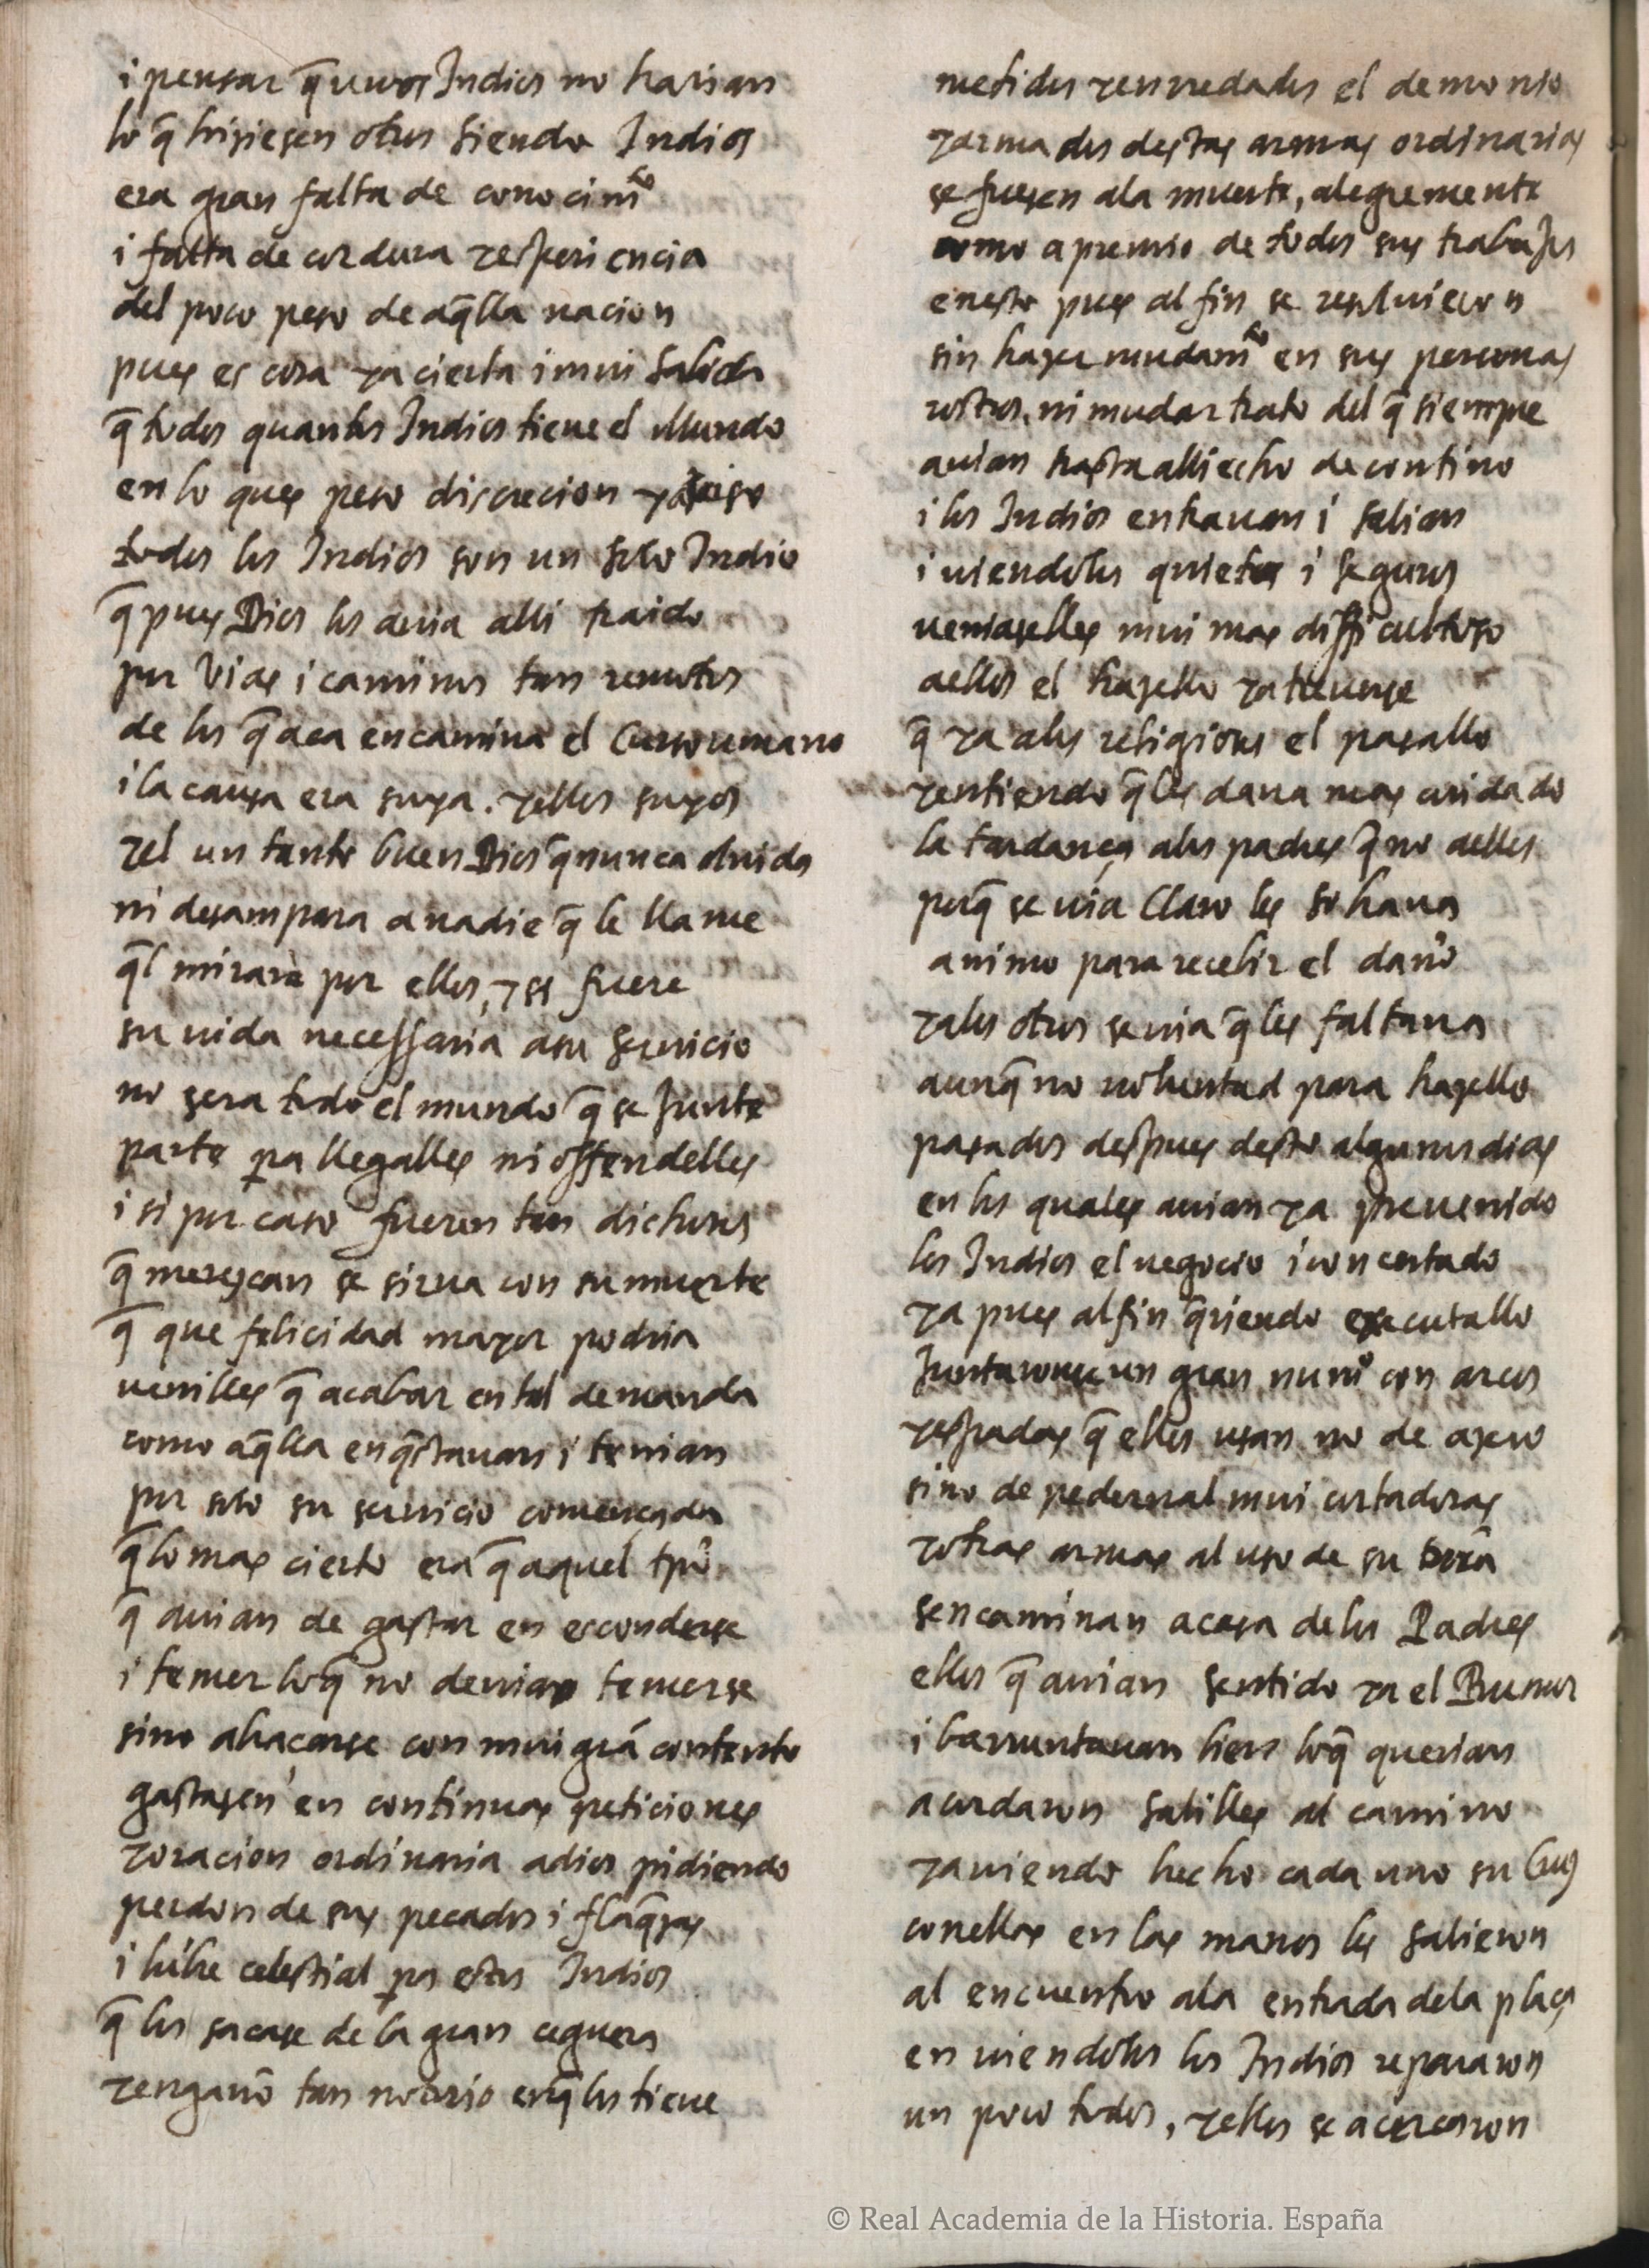 i pensar q̃ unos Indios no harian
lo q̃ hiziesen otros siendo Indios
era gran falta de conocimᵗᵒ
i falta de cordura y esperiencia
del poco peso de aq̃lla nacion
pues es cosa ya cierta i mui sabida
q̃ todos quantos Indios tiene el Mundo
en lo ques peso discrecion y
todos los Indios son un solo Indio
q̃ pues Dios los avia alli traido
por Vias i caminos tan remotos
de los q̃ aca encamina el Curso umano
i la causa era suya. y ellos suyos
y el un tanto buen Dios q̃ nunca olvida
ni desampara a nadie q̃ le llame
q̃l mirara por ellos, y si fuere
su vida necessaria a su servicio
no sera todo el mundo q̃ se Junte
parte pa llegalles ni offendelles
i si por caso fueron tan dichosos
q̃ merezcan se sirva con su muerte
q̃ que felicidad mayor podria
venilles q̃ acabar en tal demanda
como aq̃lla en q̃stavan i tenian
por solo su servicio començada
q̃ lo mas cierto era q̃ aquel tpõ
q̃ avian de gastar en esconderse
i temer loq̃ no devian temerse
sino abraçarse con mui grã contento
gastasen en continuas peticiones
y oracion ordinaria a dios pidiendo
perdon de sus pecados i flaq̃zas
i lubre celestial pa estos Indios
q̃ los sacase de la gran ceguera
y engaño tan notorio enq̃ los tiene
metidos y enrredados el demonio
y armados destas armas ordinarias
se fuesen ala muerte, alegremente
como a premio de todos sus trabajos
en esto pues al fin se resolvieron
sin hazer mudamᵗᵒ en sus personas
rostros, ni mudar trato del q̃ siempre
avian hasta alli echo de contino
i los Indios entravan i salian
i viendolos quietos i seguros
veniaselles mui mas difficultoso
a ellos el hazello y atreverse
q̃ ya a los religiosos el pasallo
y entiendo q̃ les dava mas cuidado
la tardança a los padres q̃ no a ellos
porq̃ se via Claro les sobrava
animo para recebir el daño
y a los otros se via q̃ les faltava
aunq̃ no voluntad para hazello
pasados despues desto algunos dias
en los quales avian ya prevenido
los Indios el negocio i concertado
ya pues al fin q̃riendo executallo
Juntaronse un gran numᵒ con arcos
y espadas q̃ ellos usan no de azero
sino de pedernal mui cortadoras
y otras armas al uso de su
sencaminan a casa de los Padres
ellos q̃ avian sentido ya el Rumor
i barruntavan bien loq̃ querian
acordaron salilles al camino
y aviendo hecho cada uno su Cruz
con ellas en las manos les salieron
al encuentro ala entrada dela plaça
en viendolos los Indios repararon
un poco todos, y ellos se acercaron
© Real Academia de la Historia. España